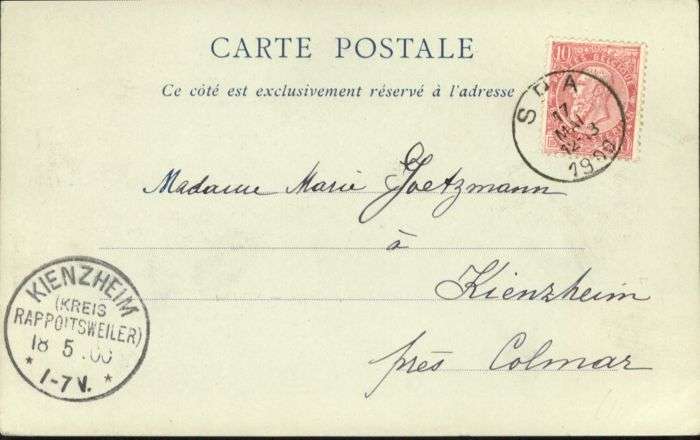 CARTE POSTALE
Ce côté est exclusivement réservé à l'adresse
10
SPA
17
MAI
12-13
1900
Madame Marie Goetzmann
à
Kienzheim
près Colmar
KIENZHEIM
(KREIS
RAPPOLTSWEILER)
18 5 .00
* 1-7 V. *